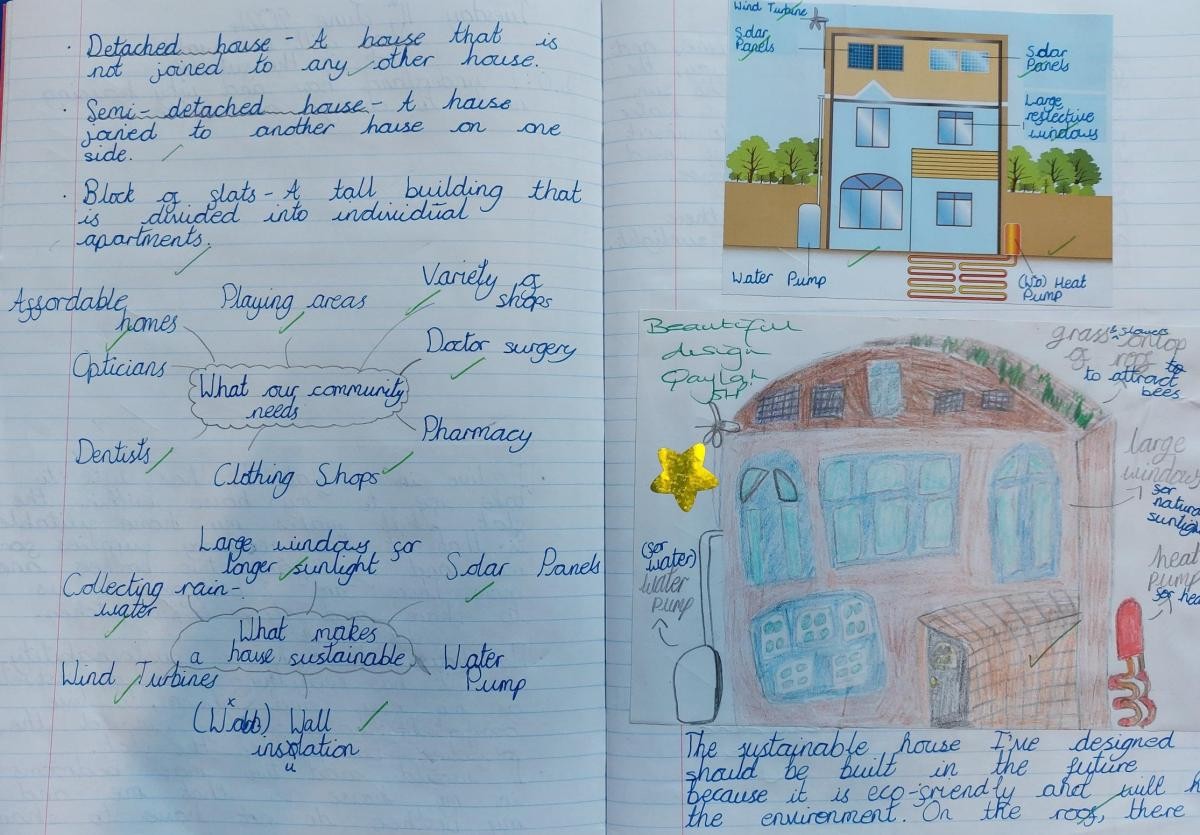 Detached house - A house that is
not joined to any other house.
Semi-detached house - A house
joined to another house on one
side.
Block of flats - A tall building that
is divided into individual
apartments.
Affordable
homes
Playing areas
Variety of
shops
Opticians
Doctor surgery
What our community
needs
Dentists
Pharmacy
Clothing Shops
Large windows for
longer sunlight
Collecting rain-
water
Solar Panels
What makes
a house sustainable
Wind Turbines
Water
Pump
Wall
insulation
Wind Turbine
Solar
Panels
Solar
Panels
Large
windows
Water Pump
Heat
Pump
Beautiful
design
grass & flowers ontop
of roof to
to attract
bees
large
windows
for
natural
sunlight
(for
water)
water
pump
heat
pump
for
The sustainable house I've designed
should be built in the future
because it is eco-friendly and will
the environment. On the roof, there